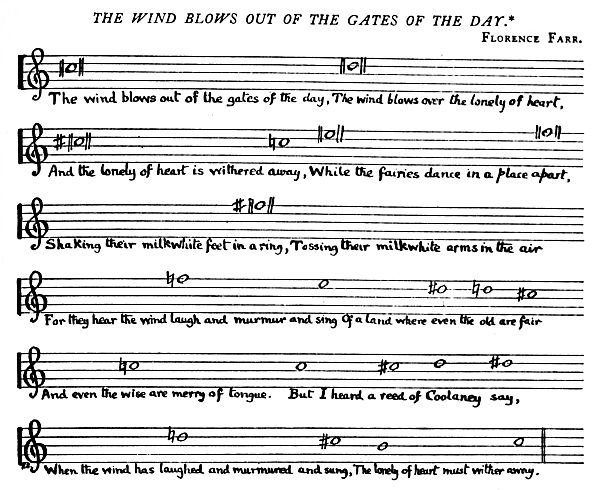 THE WIND BLOWS OUT OF THE GATES OF THE DAY.*
FLORENCE FARR.
The wind blows out of the gates of the day, The wind blows over the lonely of heart,
And the lonely of heart is withered away, While the fairies dance in a place apart,
Shaking their milkwhite feet in a ring, Tossing their milkwhite arms in the air
For they hear the wind laugh and murmur and sing Of a land where even the old are fair
And even the wise are merry of tongue. But I heard a reed of Coolaney say,
When the wind has laughed and murmured and sung, The lonely of heart must wither away.